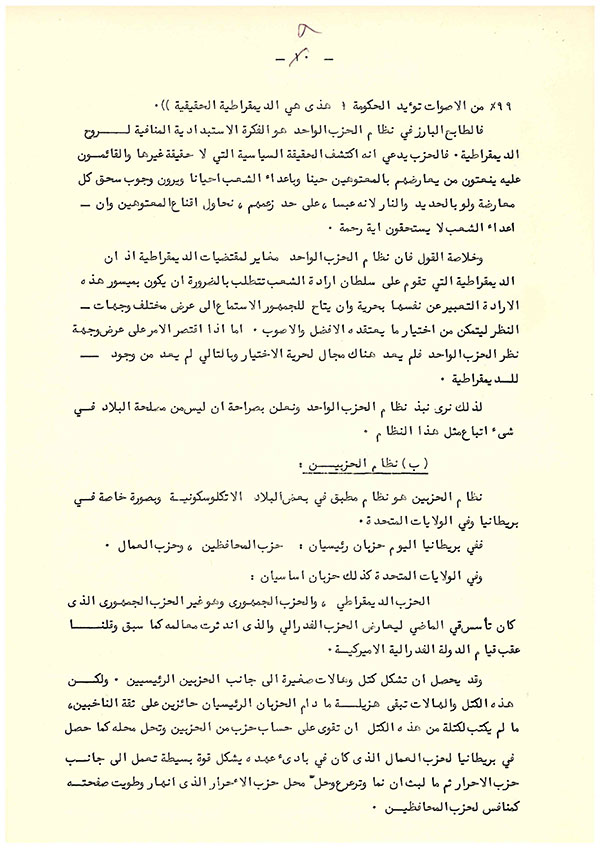 ٥
- ٢٠ -
٩٩٪ من الاصوات توءيد الحكومة ! هذى هي الديمقراطية الحقيقية )).
فالطابع البارز في نظام الحزب الواحد هو الفكرة الاستبدادية المنافية لـــروح
الديمقراطية ٠ فالحزب يدعي انه اكتشف الحقيقة السياسية التي لا حقيقة غيرها والقائمــون
عليه ينعتون من يعارضهم بالمعتوهين حينا وباعداء الشعب احيانا ويرون وجوب سحق كل
معارضة ولو بالحديد والنار لانه عبسا ، على حد زعمهم ، نحاول اقناع المعتوهين وان ــ
اعداء الشعب لا يستحقون اية رحمة ٠
وخلاصة القول فان نظام الحزب الواحد مغاير لمقتضيات الديمقراطية اذ ان
الديمقراطية التي تقوم على سلطان ارادة الشعب تتطلب بالضرورة ان يكون بميسور هذه
الارادة التعبير عن نفسها بحرية وان يتاح للجمهور الاستماع الى عرض مختلف وجهات ــ
النظر ليتمكن من اختيار ما يعتقده الافضل والاصوب ٠ اما اذا اقتصر الامر على عرض وجهة
نظر الحزب الواحد فلم يعد هناك مجال لحرية الاختيار وبالتالي لم يعد من وجود ــــ
للــديمقراطية ٠
لذلك نرى نبذ نظام الحزب الواحد ونعلن بصراحة ان ليس من مصلحة البلاد فــي
شىء اتباع مثل هذا النظام ٠
( ب ) نظام الحزبيــن :
نظام الحزبين هو نظام مطبق في بعض البلاد الانكلوسكونيـة وبصورة خاصة فــي
بريطانيا وفي الولايات المتحدة ٠
ففي بريطانيا اليوم حزبان رئيسيان : حزب المحافظين ، وحزب العمال ٠
وفي الولايات المتحدة كذلك حزبان اساسيان :
الحزب الديمقراطي ، والحزب الجمهورى وهو غير الحزب الجمهورى الذى
كان تأسس في الماضي ليعارض الحزب الفدرالي والذى اندثرت معالمه كما سبق وقلنـــا
عقب قيام الدولة الفدرالية الاميركية ٠
وقد يحصل ان تشكل كتل وهالات صغيرة الى جانب الحزبين الرئيسيين ٠ ولكــن
هذه الكتل والهالات تبقى هزيلــة ما دام الحزبان الرئيسيان حائزين على ثقة الناخبين ،
ما لم يكتب لكتلة من هذه الكتل ان تقوى على حساب حزب من الحزبين وتحل محله كما حصل
في بريطانيا لحزب العمال الذى كان في بادىء عهده يشكل قوة بسيطة تعمل الى جانــب
حزب الاحرار ثم ما لبث ان نما وترعرع وحلّ محل حزب الأحرار الذى انهار وطويت صفحتــه
كمنافس لحزب المحافظيــن ٠